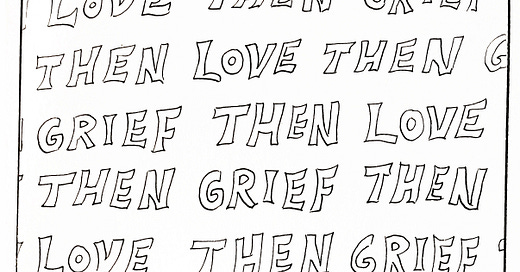 LOVE THEN GRIEF
THEN LOVE THEN G
GRIEF THEN LOVE
THEN GRIEF THEN
LOVE THEN GRIEF